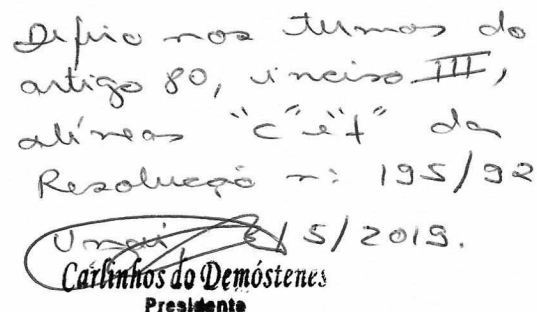 Defiro nos termos do
artigo 80, inciso III,
alíneas "c" e "f" da
Resolução n: 195/92
Unaí /5/2019.
Carlinhos do Demóstenes
Presidente